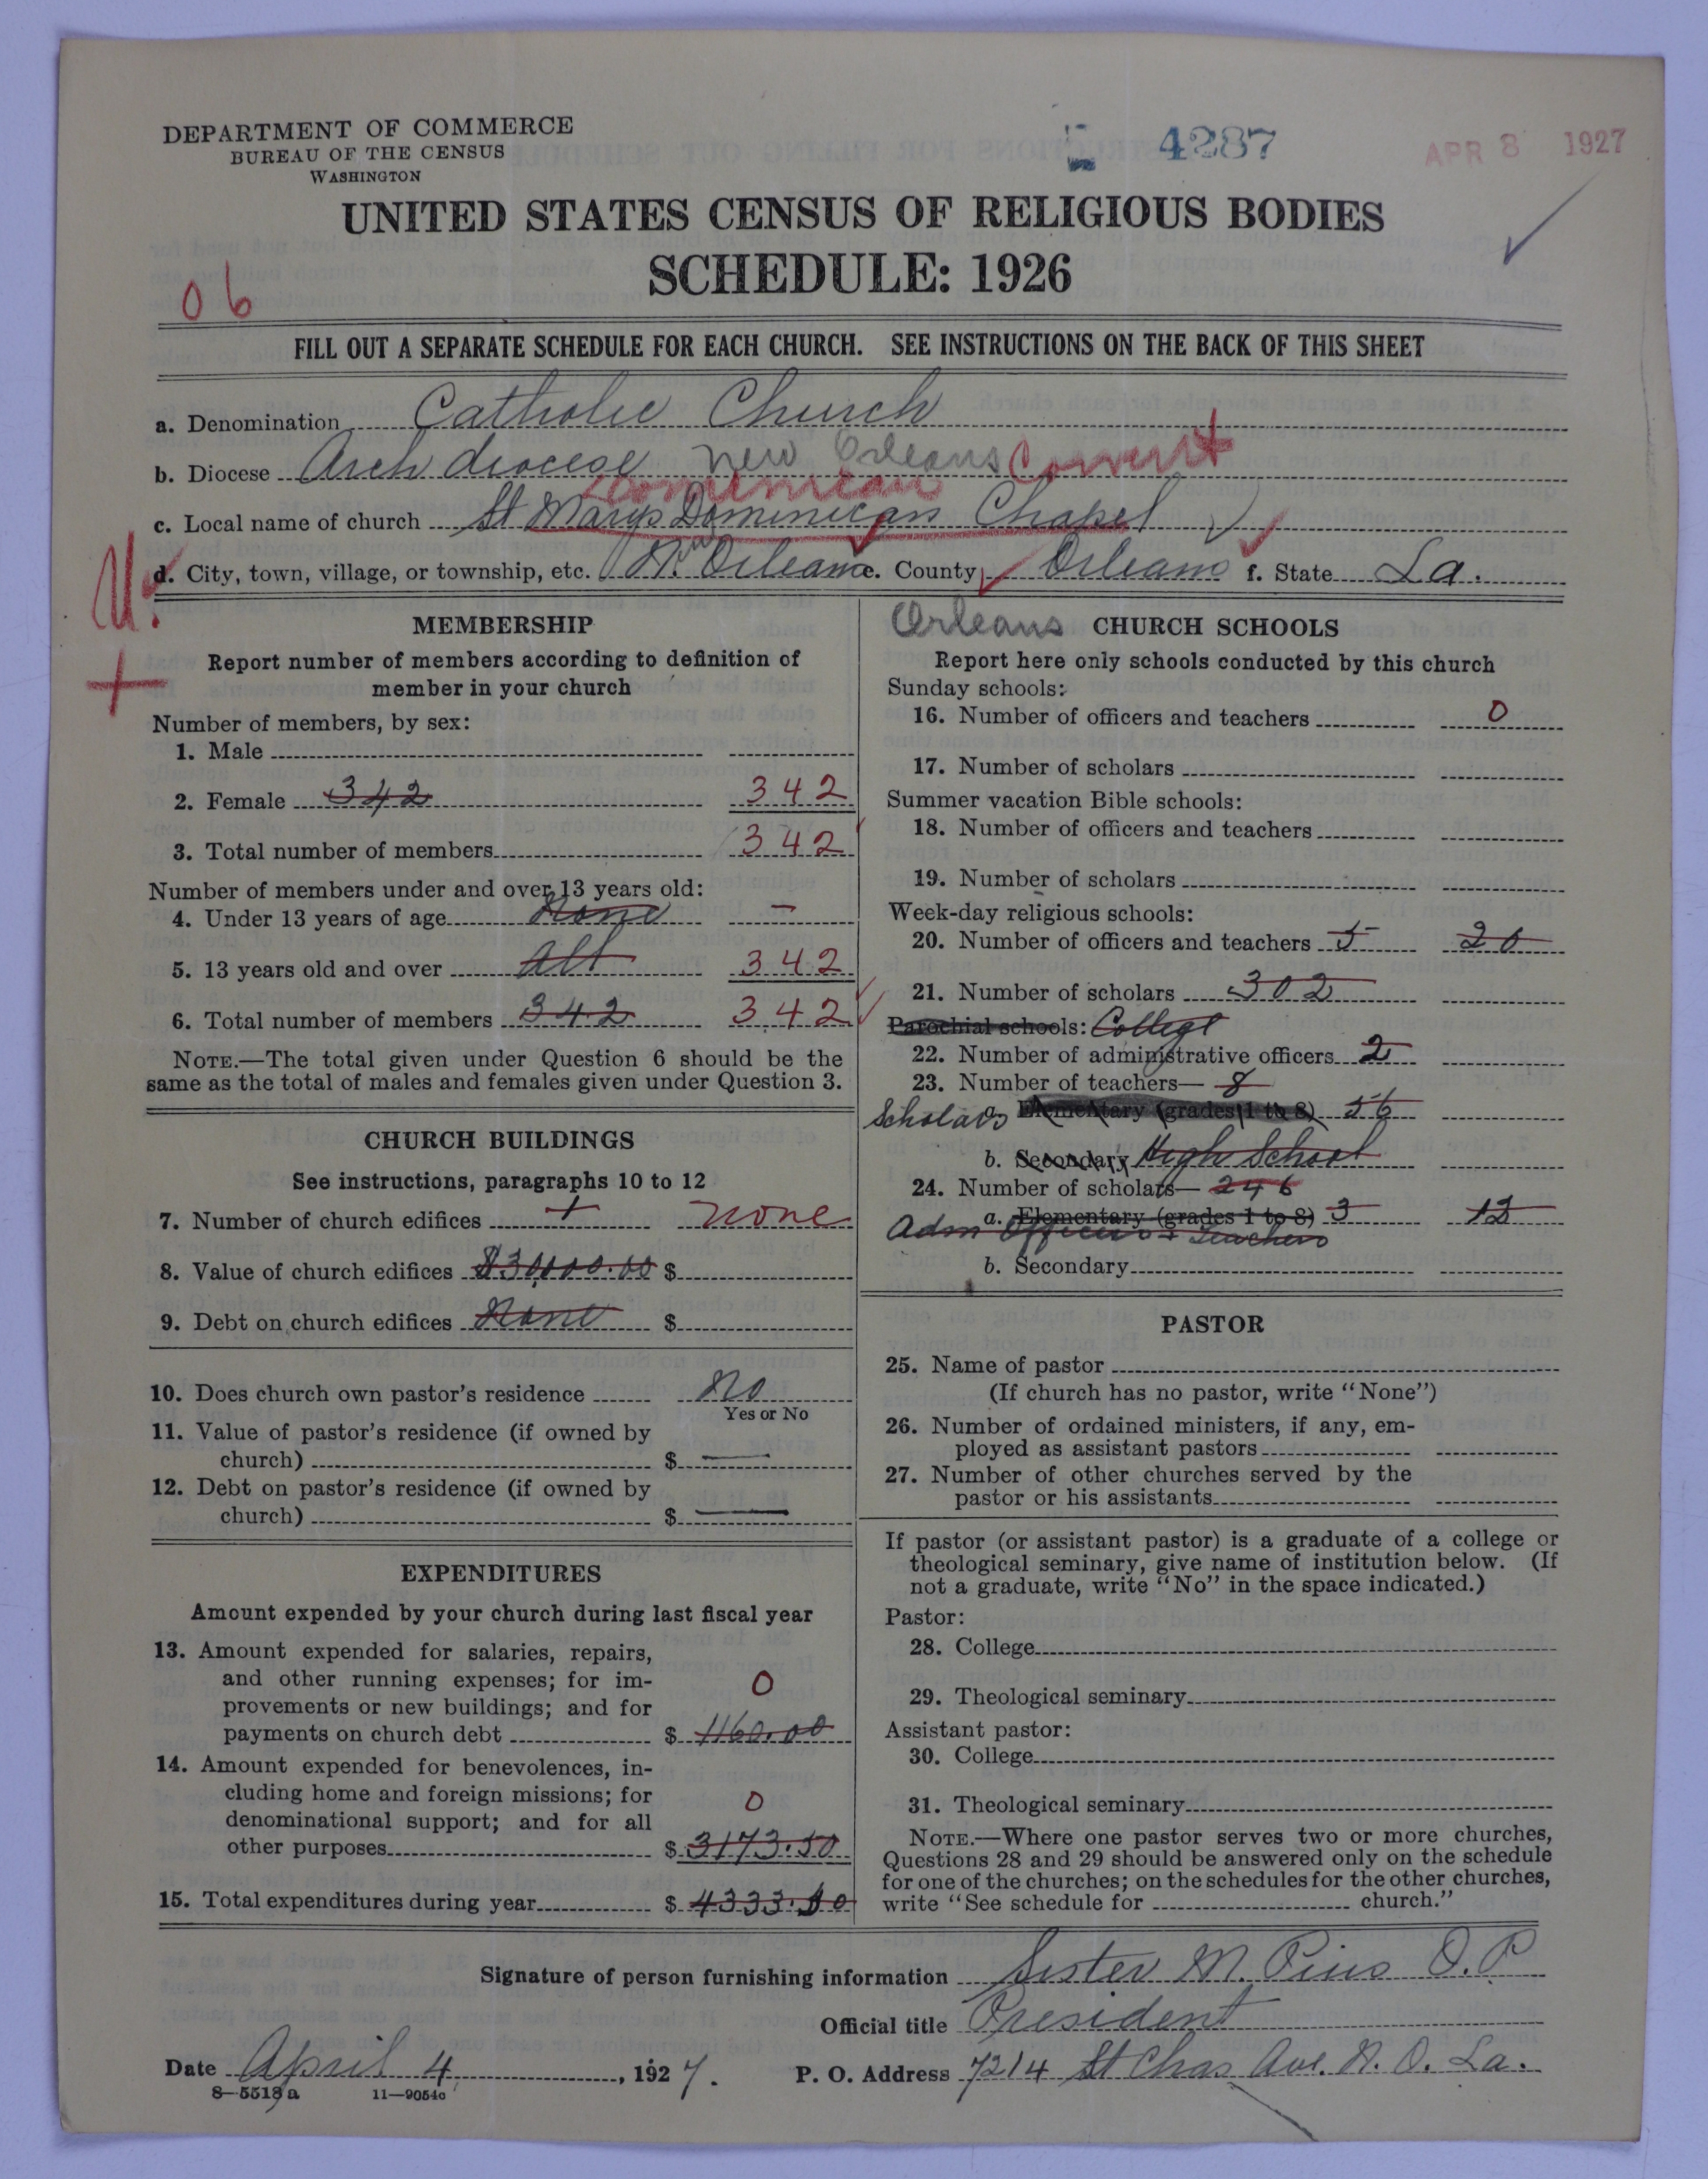 DEPARTMENT OF COMMERCE
BUREAU OF THE CENSUS
WASHINGTON
4287
APR 8 1927
UNITED STATES CENSUS OF RELIGIOUS BODIES
SCHEDULE: 1926
06
FILL OUT A SEPARATE SCHEDULE FOR EACH CHURCH. SEE INSTRUCTIONS ON THE BACK OF THIS SHEET
a. Denomination Catholic Church
b. Diocese Archdiocese New Orleans Convent
Dominican
c. Local name of church St Marys Dominican Chapel
d. City, town, village, or township, etc. N. Orleans e. County Orleans f. State La.
U.
+
MEMBERSHIP
Report number of members according to definition of
member in your church
Number of members, by sex:
1. Male
2. Female 342 342
3. Total number of members 342
Number of members under and over 13 years old:
4. Under 13 years of age None –
5. 13 years old and over All 342
6. Total number of members 342 342
NOTE.—The total given under Question 6 should be the
same as the total of males and females given under Question 3.
CHURCH BUILDINGS
See instructions, paragraphs 10 to 12
7. Number of church edifices 1 none
8. Value of church edifices $30,000.00 $
9. Debt on church edifices None $
10. Does church own pastor's residence No
Yes or No
11. Value of pastor's residence (if owned by
church) $ —
12. Debt on pastor's residence (if owned by
church) $ —
EXPENDITURES
Amount expended by your church during last fiscal year
13. Amount expended for salaries, repairs,
and other running expenses; for im-
provements or new buildings; and for 0
payments on church debt $ 1160.00
14. Amount expended for benevolences, in-
cluding home and foreign missions; for
denominational support; and for all 0
other purposes $ 3173.50
15. Total expenditures during year $ 4333.50
Orleans CHURCH SCHOOLS
Report here only schools conducted by this church
Sunday schools:
16. Number of officers and teachers 0
17. Number of scholars
Summer vacation Bible schools:
18. Number of officers and teachers
19. Number of scholars
Week-day religious schools:
20. Number of officers and teachers 5 20
21. Number of scholars 302
Parochial schools: College
22. Number of administrative officers 2
23. Number of teachers— 8
Scholars a. Elementary (grades 1 to 8) 56
b. Secondary High School
24. Number of scholars— 246
a. Elementary (grades 1 to 8) 3 13
Adm Officers + Teachers
b. Secondary
PASTOR
25. Name of pastor
(If church has no pastor, write "None")
26. Number of ordained ministers, if any, em-
ployed as assistant pastors
27. Number of other churches served by the
pastor or his assistants
If pastor (or assistant pastor) is a graduate of a college or
theological seminary, give name of institution below. (If
not a graduate, write "No" in the space indicated.)
Pastor:
28. College
29. Theological seminary
Assistant pastor:
30. College
31. Theological seminary
NOTE.—Where one pastor serves two or more churches,
Questions 28 and 29 should be answered only on the schedule
for one of the churches; on the schedules for the other churches,
write "See schedule for church."
Signature of person furnishing information Sister M. Pius O.P
Official title President
Date April 4, 1927. P. O. Address 7214 St Chas Ave. N. O. La.
8—5513a 11—9054c